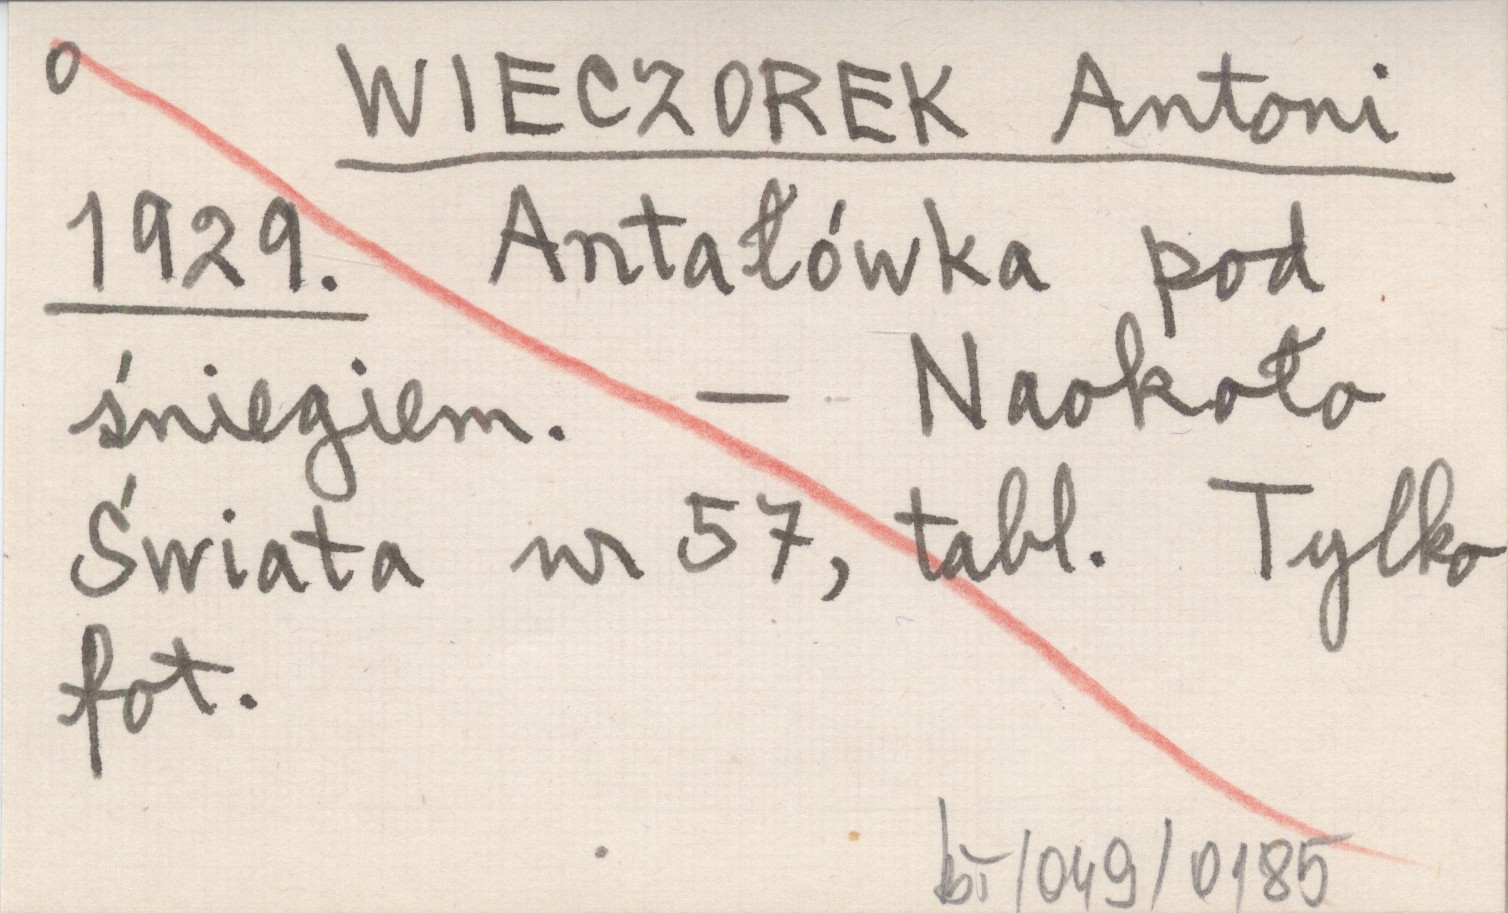 o WIECZOREK Antoni
1929. Antałówka pod
śniegiem. — Naokoło
Świata nr 57, tabl. Tylko
fot.
bī/049/0185